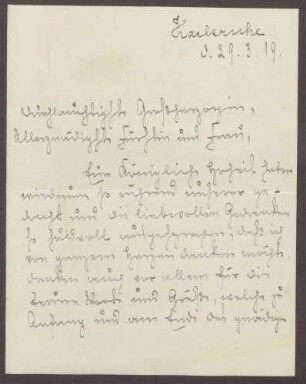 Karlsruhe
d. 29. 3. 19.
Durchlauchtigste Großherzogin,
Allergnädigste Fürstin und Frau,
Eure Königliche Hoheit haben
wiederum so rührend unserer ge-
dacht und die liebevollen Gedanken
so huldvoll ausgesprochen, daß ich
von ganzem Herzen danken möchte,
danken auch vor allem für die
Worte und Grüße, welche zu
Anfang und am Ende des gnädigen